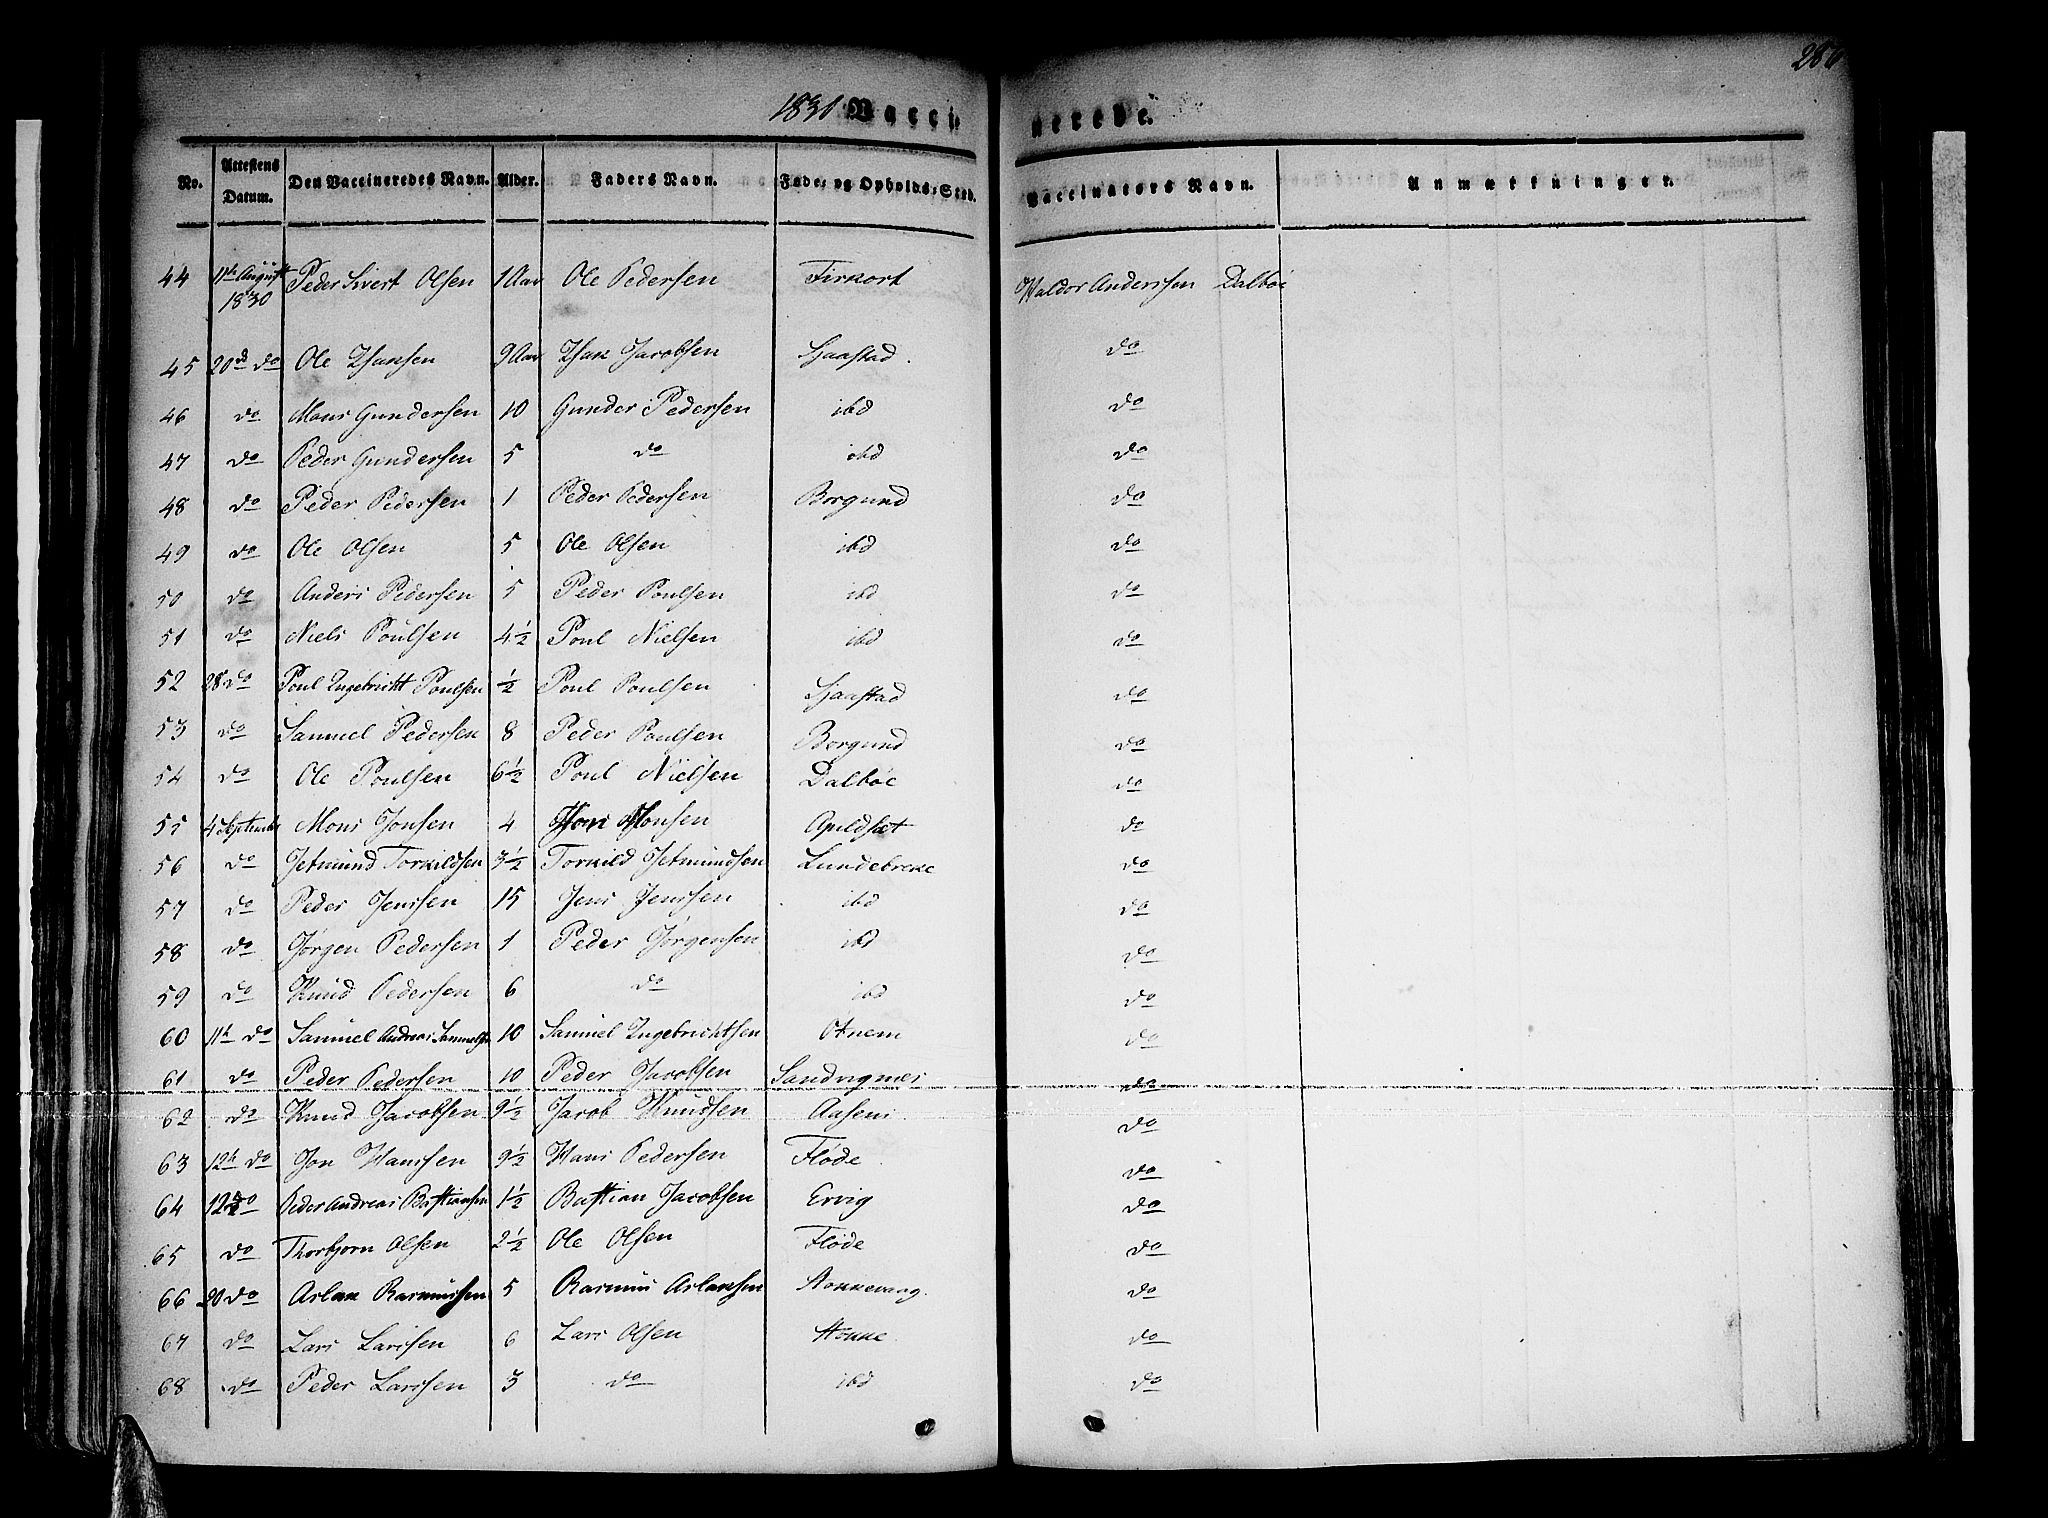 286
1830 Vaccinerede.
No. Attestens Datum. Den Vaccineredes Navn. Alder. Faders Navn. Føde- og Opholds-Sted. Vaccinators Navn. Anmærkninger.
44 11te August 1830 Peder Sivert Olsen 1 Aar Ole Pedersen Firkort Haldor Anderssen Dalbøe
45 20d do Ole Isaksen 9 Aar Isak Jacobsen Sjaastad. do
46 do Mons Gundersen 10 Gunder Pedersen ibd do
47 do Peder Gundersen 5 do ibd do
48 do Peder Pedersen 1 Peder Pedersen Borgund do
49 do Ole Olsen 5 Ole Olsen ibd do
50 do Anders Pedersen 5 Peder Poulsen ibd do
51 do Niels Poulsen 4½ Poul Nielsen ibd do
52 28 do Poul Ingebricht Poulsen ½ Poul Poulsen Sjaastad do
53 do Samuel Pedersen 8 Peder Poulsen Borgund do
54 do Ole Poulsen 6½ Poul Nielsen Dalbøe do
55 4 September Mons Jonsen 4 Jonsen Apuldsæt do
56 do Jetmund Torkildsen 3½ Torkild Jetmundsen Lundebreke do
57 do Peder Jenssen 15 Jens Jenssen ibd do
58 do Jørgen Pedersen 1 Peder Jørgensen ibd do
59 do Knud Pedersen 6 do ibd do
60 11te do Samuel Andreas Samuelsen 10 Samuel Ingebrichtsen Otnem do
61 do Peder Pedersen 10 Peder Jacobsen Sandvignes do
62 do Knud Jacobsen 9½ Jacob Knudsen Aasem. do
63 12te do Jon Hanssen 9½ Hans Pedersen Fløde do
64 12 do Peder Andreas Bastiansen 1½ Bastian Jacobsen Ervig do
65 do Thorbjørn Olsen 2½ Ole Olsen Fløde do
66 20 do Aslak Rasmussen 5 Rasmus Aslaksen Stokkevaag. do
67 do Lars Larssen 6 Lars Olsen Stokke do
68 do Peder Larssen 3 do ibd do